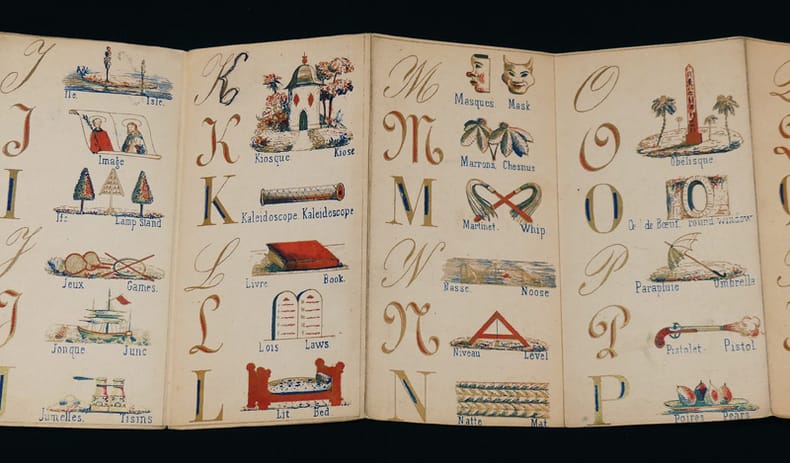 I
Ile. Isle.
I
Image
I
Ifs Lamp Stand
J
Jeux Games.
J
Jonque Junc
J
Jumelles. Tisins
K
K
Kiosque. Kiose
K
Kaleidoscope. Kaleidescope
L
Livre Book.
L
Lois Laws
L
Lit Bed
M
Masques Mask
M
Marrons. Chesnus
M
Martinet. Whip
N
Nasse. Noose
N
Niveau Level
N
Natte Mat
O
O
Obelisque.
O
de Bœuf. round window
P
Parapluie Umbrella
P
Pistolet. Pistol
P
Poires Pears